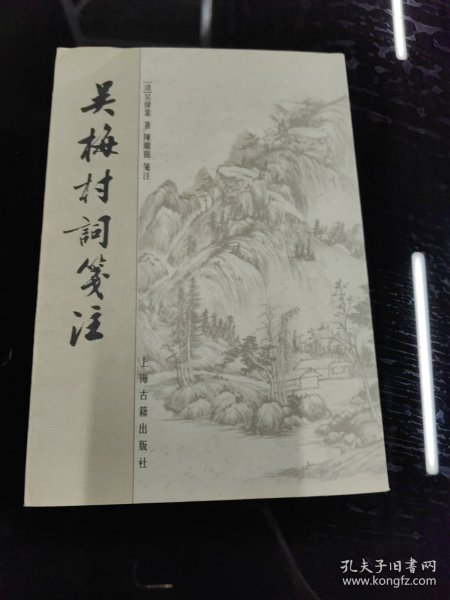 吴梅村詞箋注
［清］吴偉業 著 陳繼龍 箋注
上海古籍出版社
孔夫子旧书网
www.kongfz.com